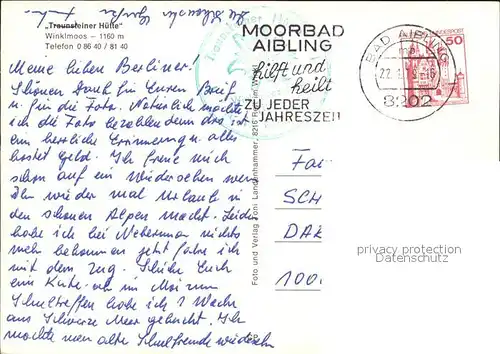 "Traunsteiner Hütte"
Winklmoos — 1160 m
Telefon 0 86 40 / 81 40
Meine lieben Berliner!
Schönen Dank für Euren Brief
u. für die Foto. Natürlich möchte
ich die Foto bezahlen denn das ist
ein herrliche Erinnerung u. alles
kostet Geld. Ich freue mich
schon auf ein Wiedersehen wenn
Ihr wieder mal Urlaub in
den schönen Alpen macht. Leider
habe ich bei nichts
mehr bekommen jetzt fahre ich
mit dem Zug. Schicke Euch
ein Karte. ich im Mai zum
Schultreffen habe ich 1 Woche
ans Schwarze Meer gebucht. Ich
möchte man alte Schulfreunde wiedersehn
MOORBAD
AIBLING
hilft und
heilt
ZU JEDER
JAHRESZEIT
BAD AIBLING
8202
BUNDESPOST
50
Foto und Verlag Toni Langenhammer, 8216
Fa
SCH
DAR
100
privacy protection
Datenschutz